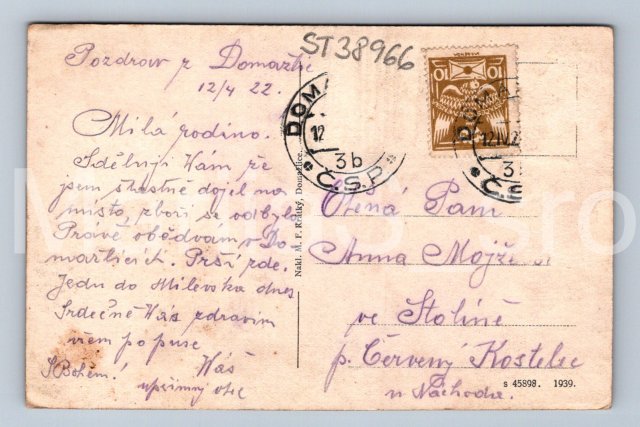 ST38966
Pozdrav z Domažlic
12/4 22.
Milá rodino.
Sděluji Vám že
jsem šťastně dojel na
místo, zboží se odbylo
Právě obědvám v Do-
mažlicích. Prší zde.
Jedu do Milevska dnes
Srdečně Vás zdravím
všem po puse
S Bohem! Váš
upřímný otec
Nakl. M. F. Krátký, Domažlice.
10 10
DOMA
12
3b
Č.S.P.
DOMA
12.IV.2
3
Č.S
Ctěná Paní
Anna
ve Stolíně
p. Červený Kostelec
u Náchoda.
s 45898. 1939.